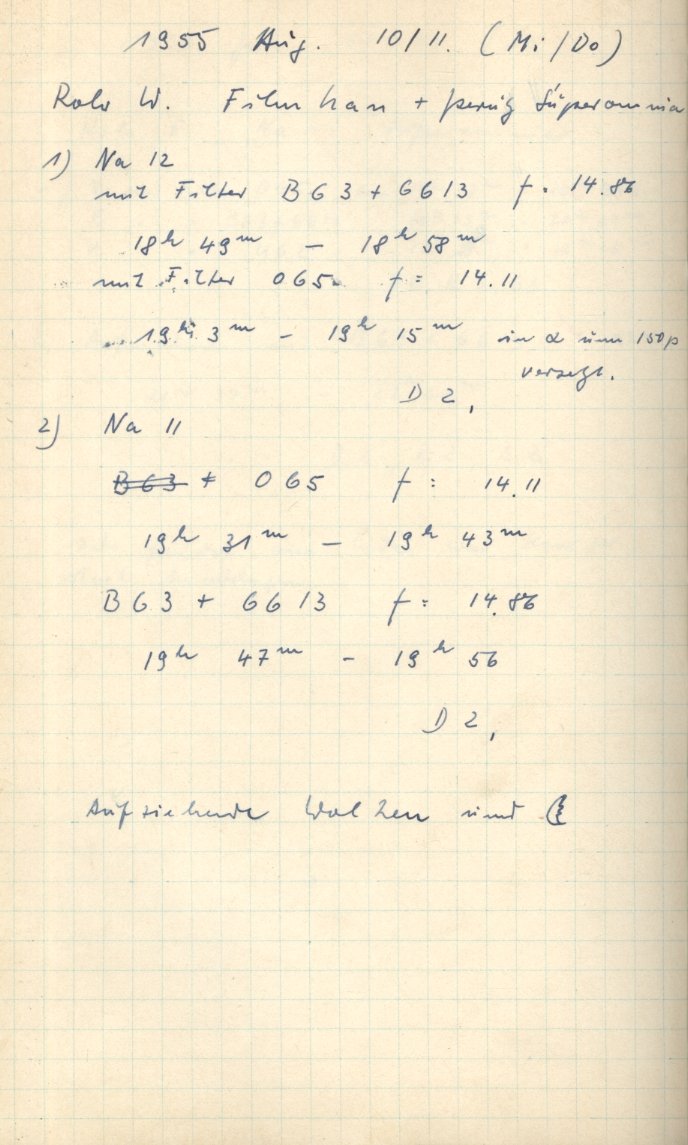 1955 Aug. 10/11. (Mi/Do)
Rolv W. Filmkan + perutz Superomnia
1) Na 12
mit Filter BG3 + GG13 f = 14.86
18h 49m – 18h 58m
mit Filter OG5 f = 14.11
19h 3m – 19h 15m in α um 150p
versetzt.
D 2,
2) Na 11
BG3 + OG5 f = 14.11
19h 31m – 19h 43m
BG3 + GG13 f = 14.86
19h 47m – 19h 56
D 2,
Aufziehende Wolken und ☾